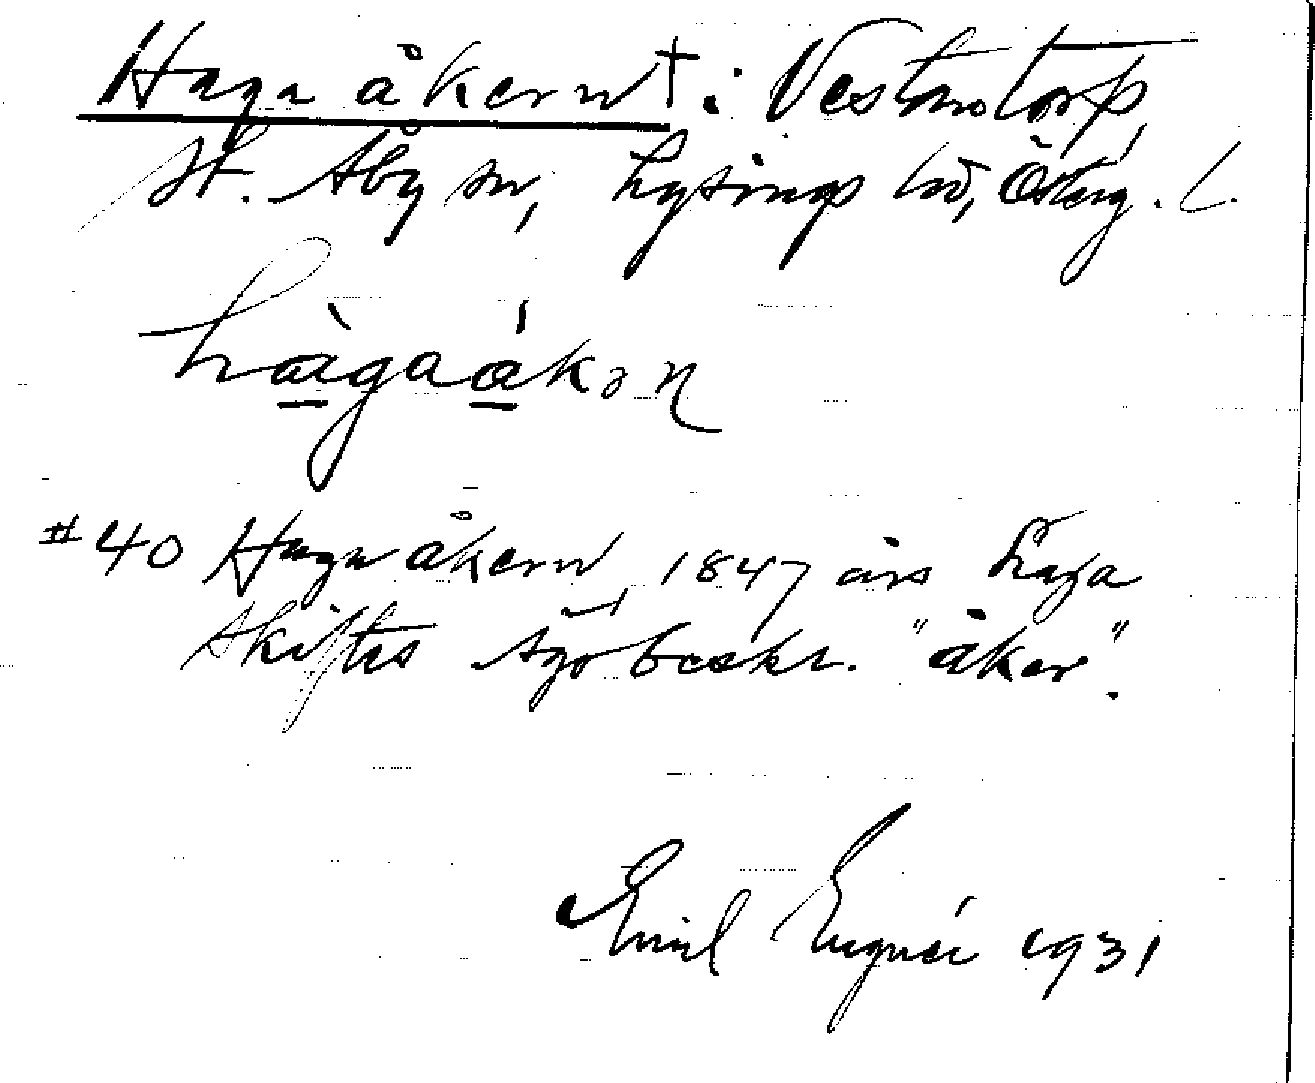 Haga åkern † i Vestantorp,
St. Åby sn, Lysings hd, Östg. l.
hàgaákən
#40 Haga åkern, 1847 års Laga
skiftes ägobeskr. "åker".
Emil 1931